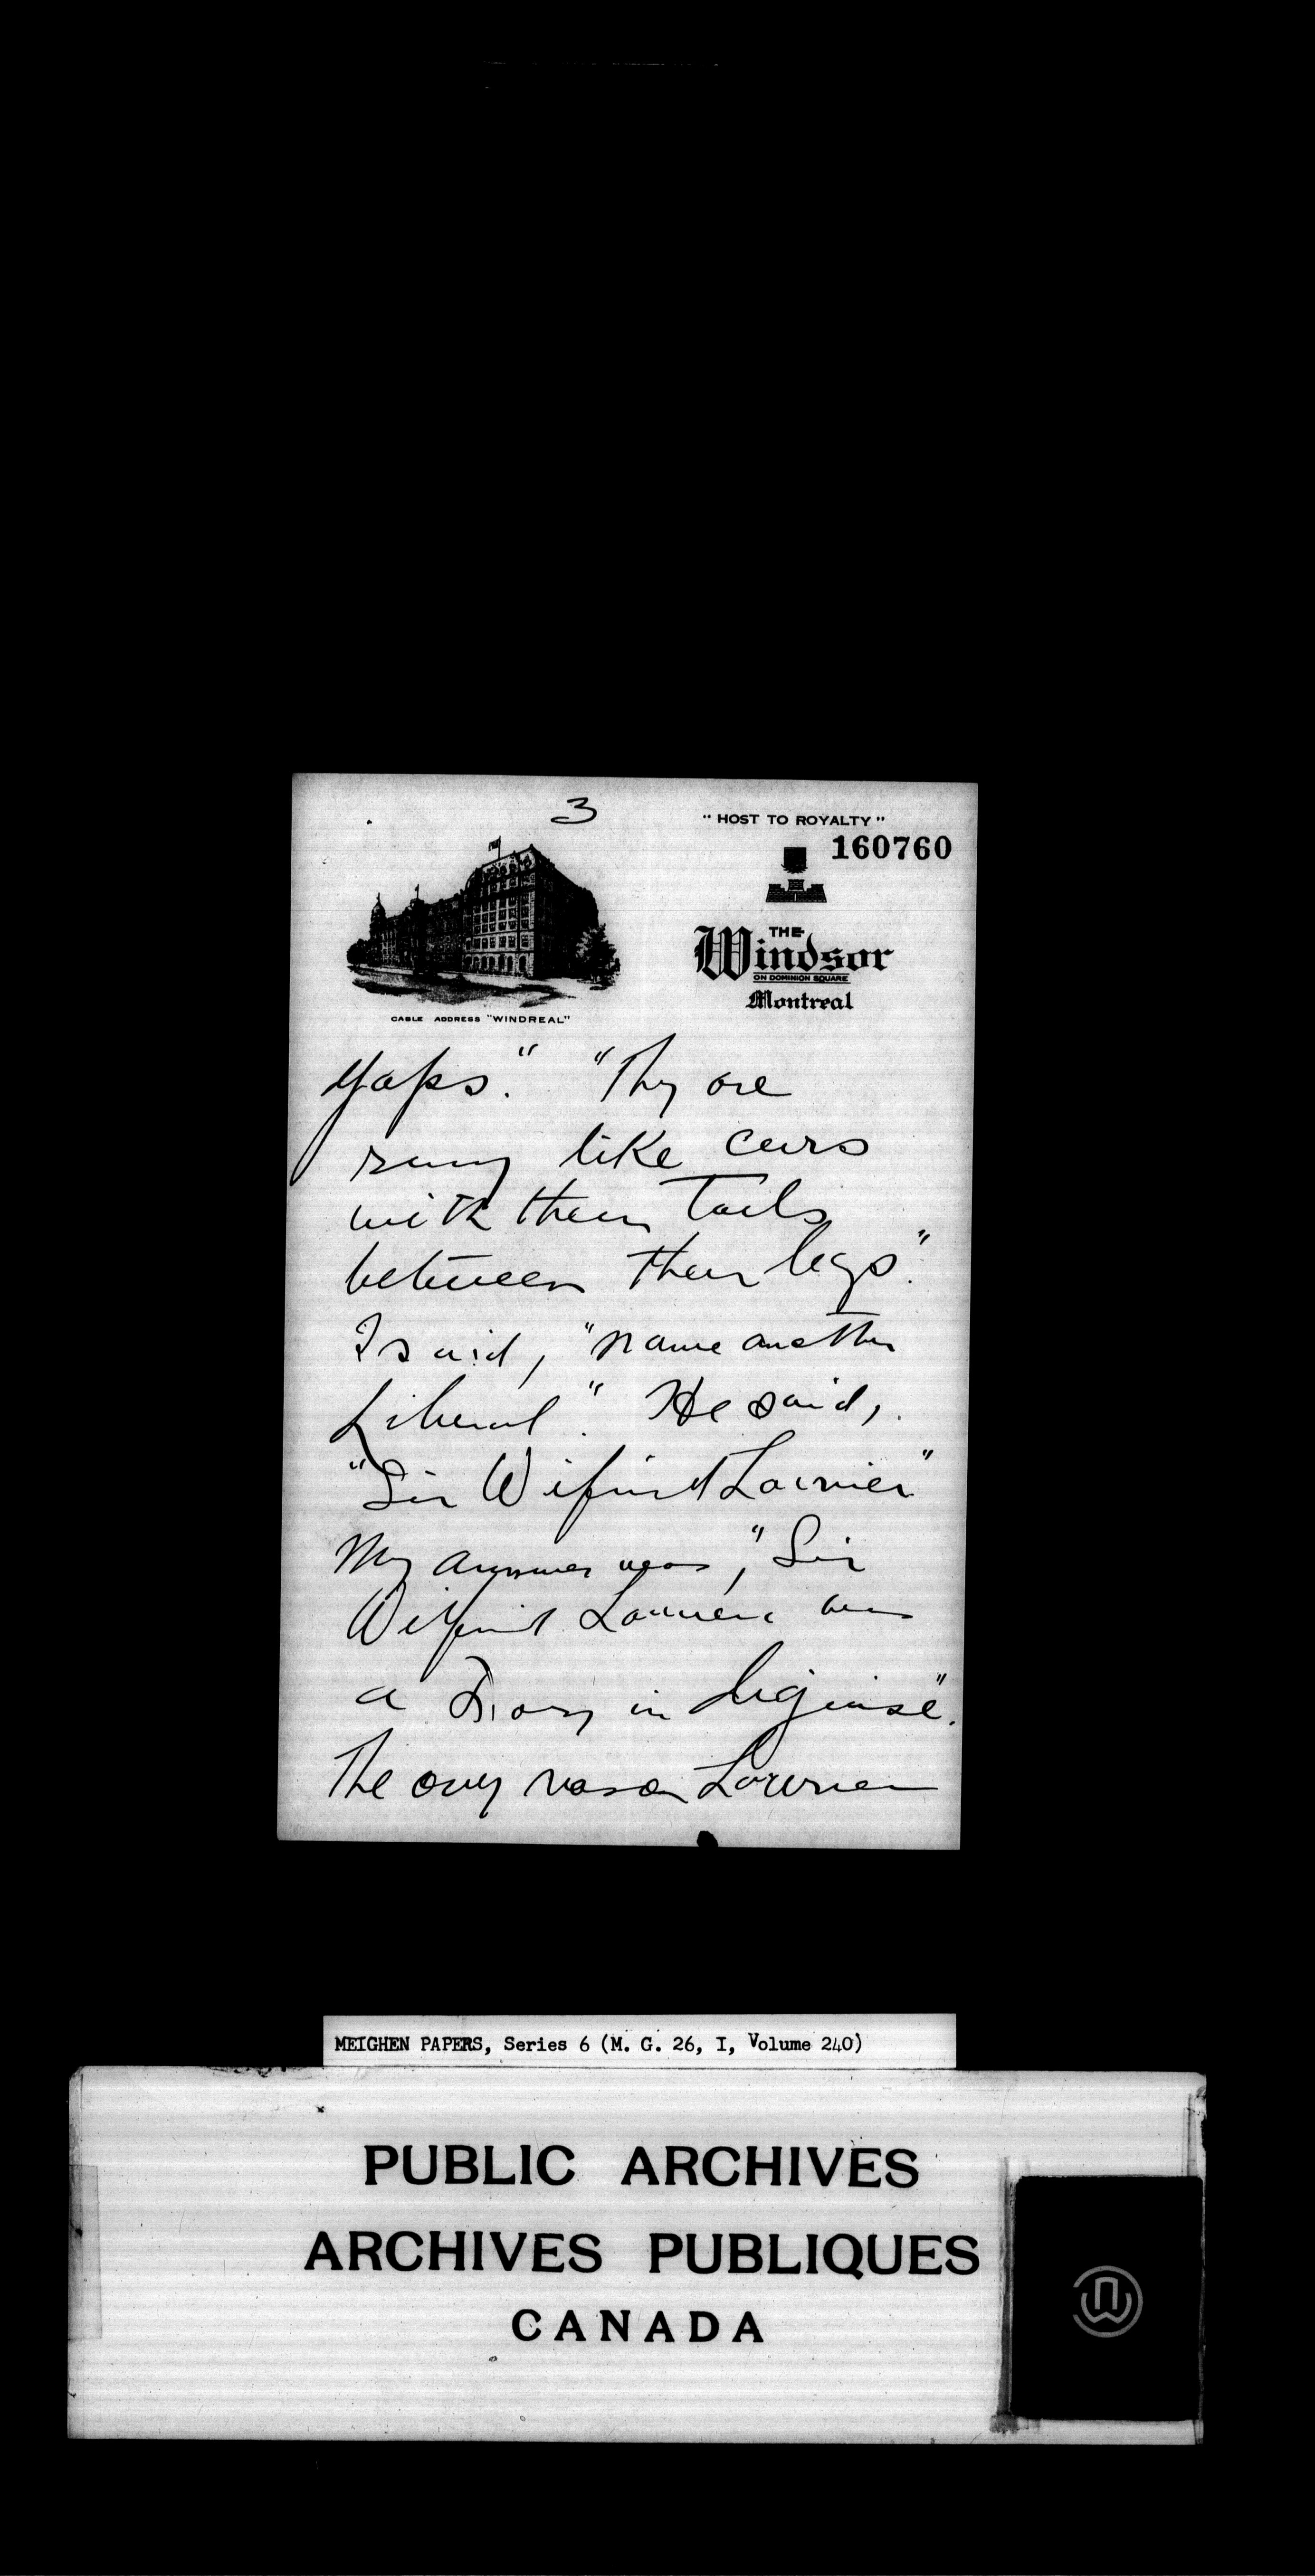 3
"HOST TO ROYALTY"
160760
THE
Windsor
ON DOMINION SQUARE
Montreal
CABLE ADDRESS "WINDREAL"
yaps." "They are
like curs
with their tails
between their legs".
I said, "name another
Liberal". He said,
"Sir Wilfrid Laurier"
My answer was, "Sir
Wilfrid Laurier was
a Tory in disguise".
The only reason Laurier
MEIGHEN PAPERS, Series 6 (M. G. 26, I, Volume 240)
PUBLIC ARCHIVES
ARCHIVES PUBLIQUES
CANADA